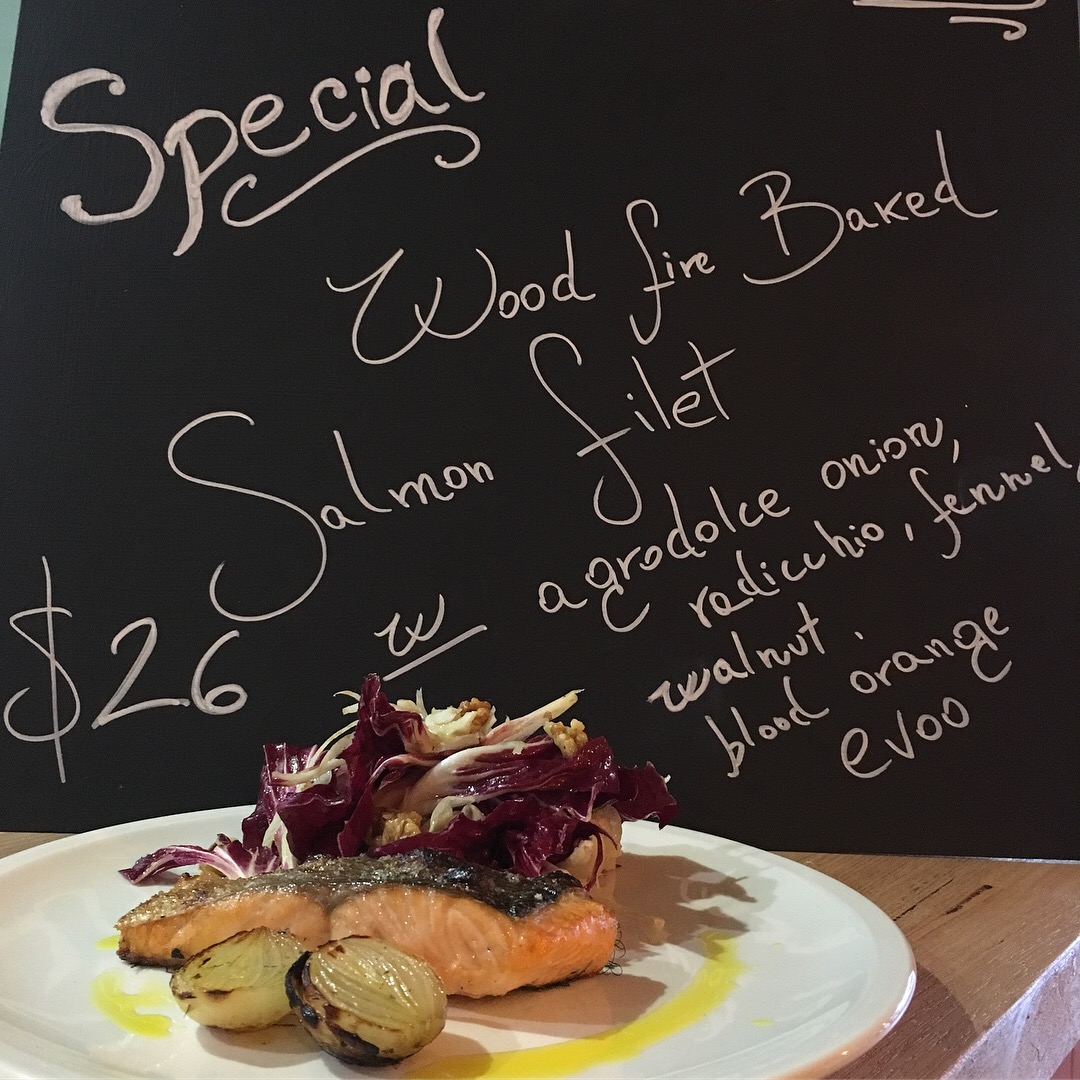 Special
Wood fire Baked
Salmon filet
$26 w agrodolce onion,
radicchio, fennel,
walnut,
blood orange
evoo